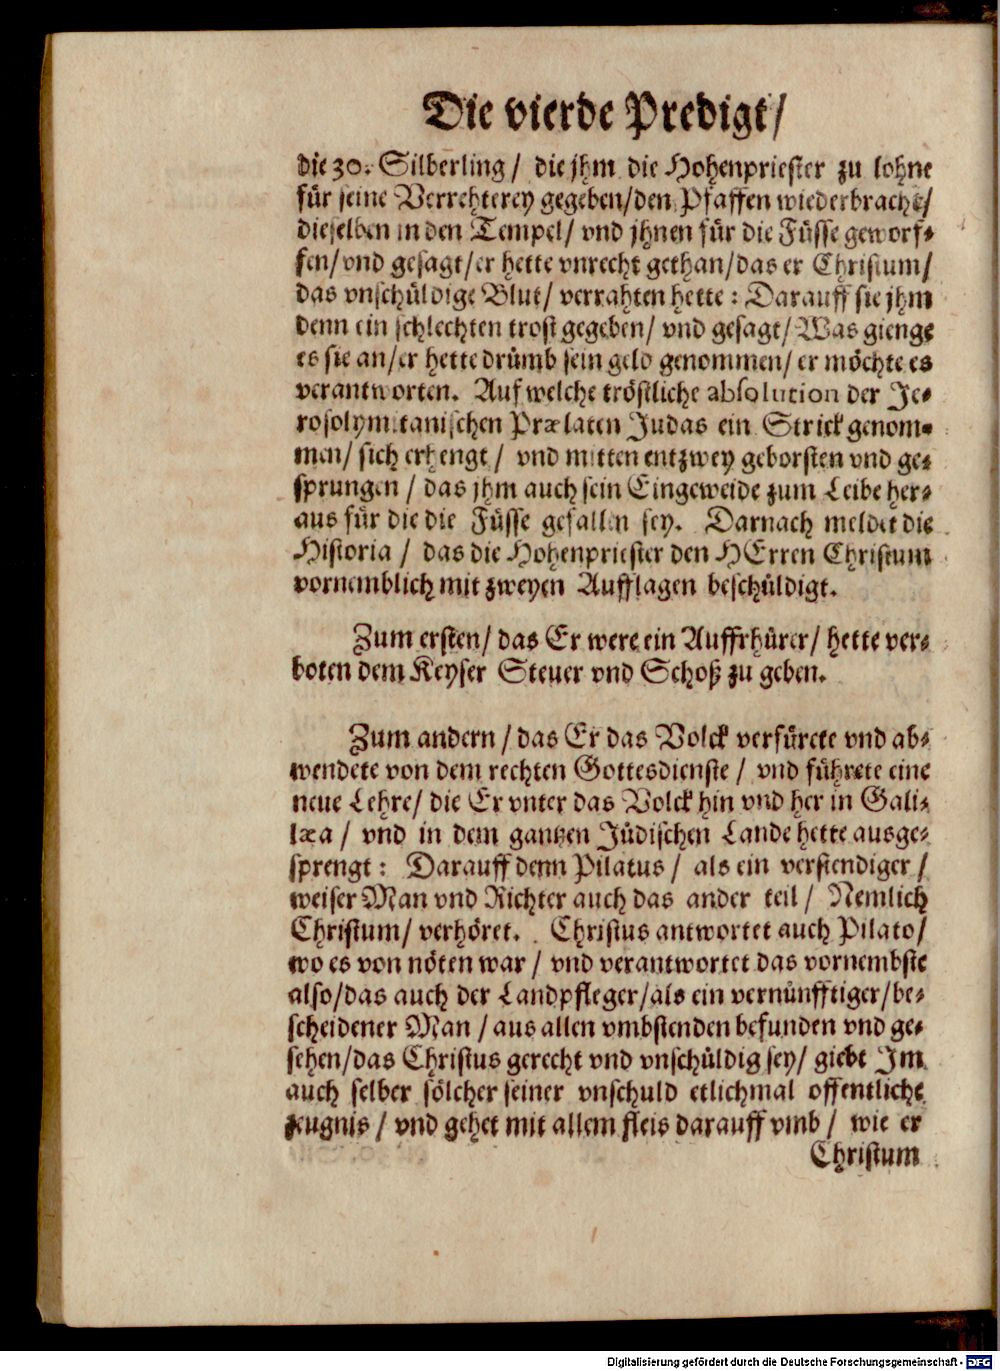 Die vierde Predigt/
die 30. Silberling / die jhm die Hohenpriester zu lohne
für seine Verrehterey gegeben/den Pfaffen wiederbracht/
dieselben in den Tempel/ vnd jhnen für die Füsse geworf-
fen/vnd gesagt/er hette vnrecht gethan/das er Christum/
das vnschüldige Blut/ verrahten hette : Darauff sie jhm
denn ein schlechten trost gegeben/ vnd gesagt/ Was gienge
es sie an/er hette drümb sein geld genommen/ er möchte es
verantworten. Auf welche tröstliche absolution der Je-
rosolymitanischen Prælaten Judas ein Strick genom-
men/ sich erhengt / vnd mitten entzwey geborsten vnd ge-
sprungen / das jhm auch sein Eingeweide zum Leibe her-
aus für die die Füsse gefallen sey. Darnach meldet die
Historia / das die Hohenpriester den HErren Christum
vornemblich mit zweyen Aufflagen beschüldigt.
Zum ersten/ das Er were ein Auffrhürer/ hette ver-
boten dem Keyser Steuer vnd Schoß zu geben.
Zum andern / das Er das Volck verfürete vnd ab-
wendete von dem rechten Gottesdienste / vnd führete eine
neue Lehre/ die Er vnter das Volck hin vnd her in Gali-
læa / vnd in dem gantzen Jüdischen Lande hette ausge-
sprengt : Darauff denn Pilatus / als ein verstendiger /
weiser Man vnd Richter auch das ander teil / Nemlich
Christum/ verhöret. Christus antwortet auch Pilato/
wo es von nöten war / vnd verantwortet das vornembste
also/das auch der Landpfleger/als ein vernünfftiger/be-
scheidener Man / aus allen vmbstenden befunden vnd ge-
sehen/das Christus gerecht vnd vnschüldig sey/ giebt Im
auch selber sölcher seiner vnschuld etlichmal offentliche
zeugnis / vnd gehet mit allem fleis darauff vmb / wie er
Christum
Digitalisierung gefördert durch die Deutsche Forschungsgemeinschaft - DFG